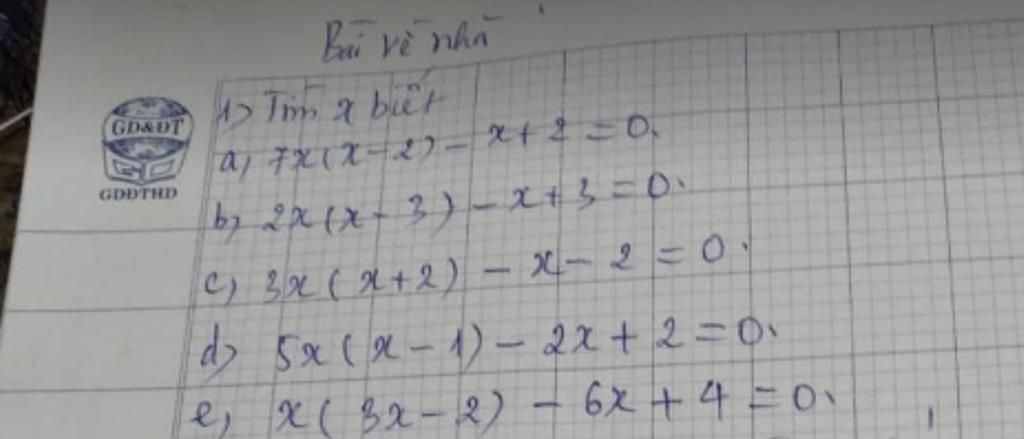 Bài về nhà
1) Tìm x biết
GD&DT
GDDTHD
a) 7x(x-2) - x+2 = 0.
b) 2x(x-3) - x+3 = 0.
c) 3x(x+2) - x-2 = 0.
d) 5x(x-1) - 2x+2 = 0.
e) x(3x-2) - 6x+4 = 0.